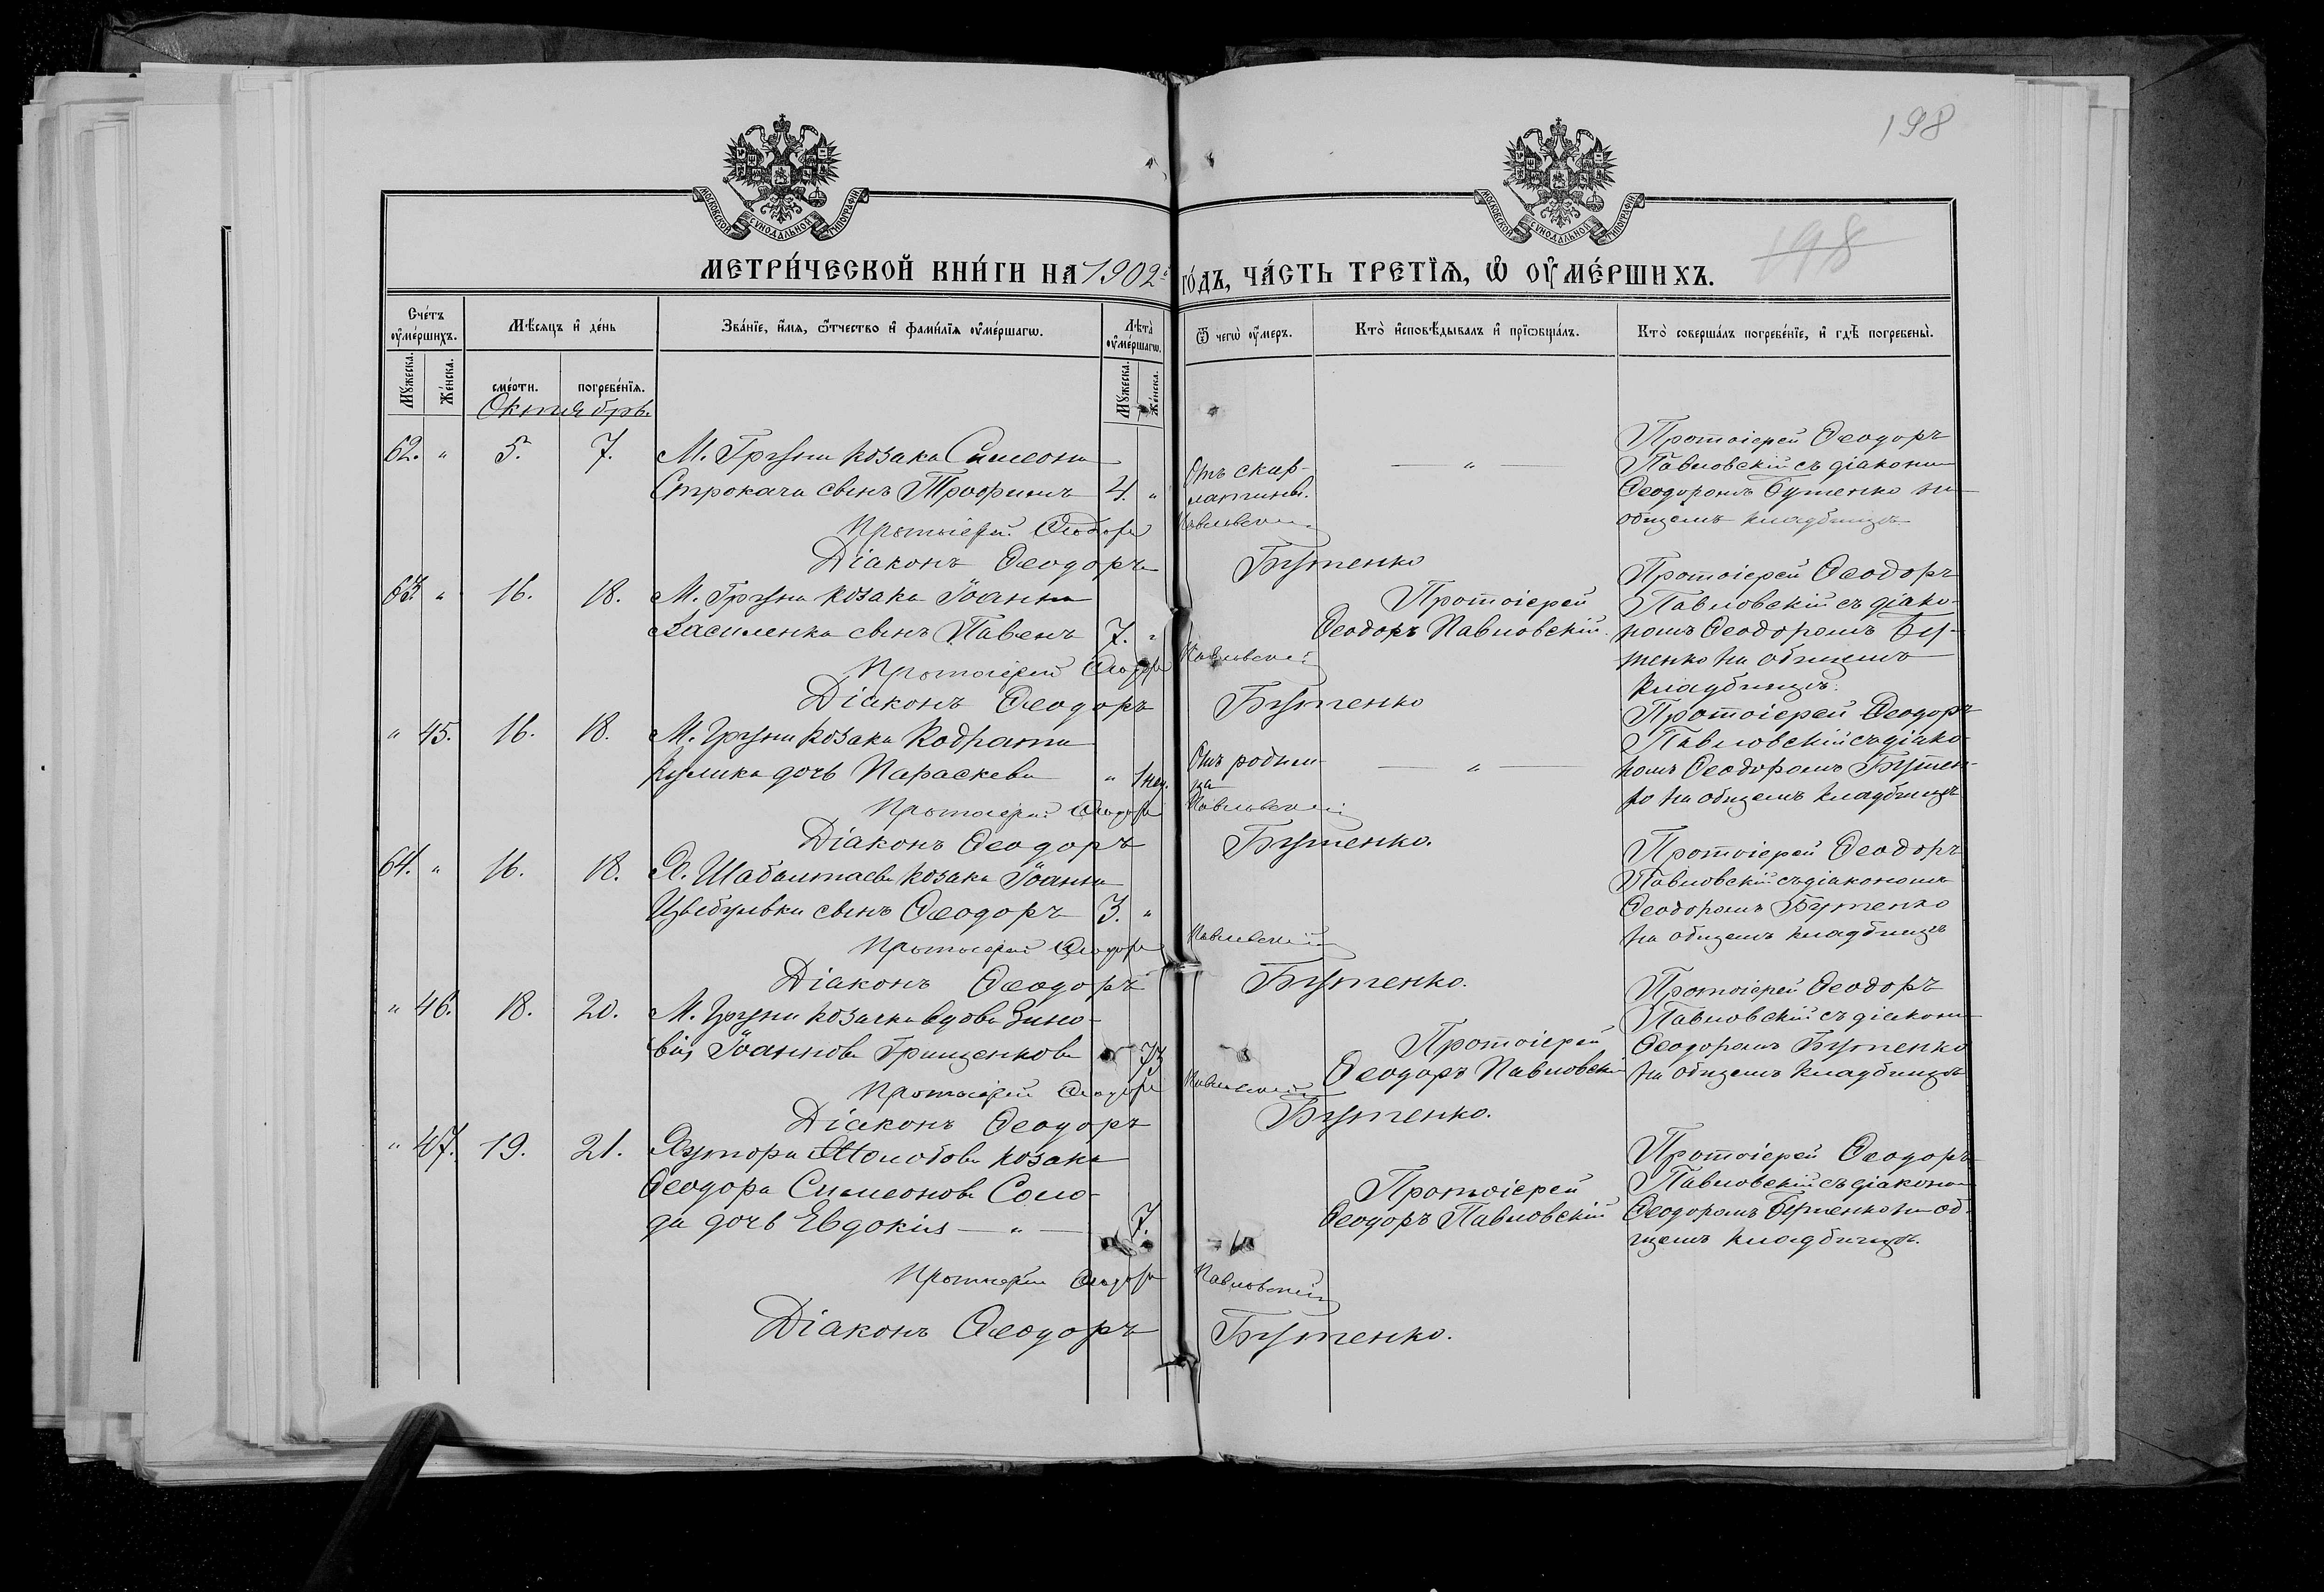 198
198
МОСКОВСКОЙ СУНОДАЛЬНОЙ ТИПОГРАФІИ
МОСКОВСКОЙ СУНОДАЛЬНОЙ ТИПОГРАФІИ
МЕТРИ́ЧЕСКОЙ КНИ́ГИ НА 1902й
ГО́ДЪ, ЧА́СТЬ ТРЕТІѦ, Ѡ ОУМЕ́РШИХЪ.
Сче́тъ оумéршихъ. Мѣсяцъ и де́нь Зва́нїе, и́мя, ѿтчество и фами́лїя оумéршагѡ. Лѣта̀ оумéршагѡ. Ѿ чегѡ̀ оу́меръ. Кто̀ исповѣ́дывалъ и прїѡбща́лъ. Кто̀ соверша́лъ погребе́нїе, и гдѣ̀ погребены̀.
Мꙋ́жеска. Же́нска. сме́рти. погребе́нїя. Мꙋ́жеска. Же́нска.
Октябрь.
62. " 5. 7. М. Груни козака Симеона
Строкача сынъ Трофимъ 4. "
Отъ скар-
латины.
— " —
Протоіерей Ѳеодоръ
Павловскій съ діакономъ
Ѳеодоромъ Бутенко на
общемъ кладбищѣ
Протоіерей Ѳеодоръ Павловскій
Діаконъ Ѳеодоръ Бутенко
63. " 16. 18. М. Груни козака Іоанна
Василенка сынъ Павелъ 7. "
Протоіерей
Ѳеодоръ Павловскій.
Протоіерей Ѳеодоръ
Павловскій съ діако-
номъ Ѳеодоромъ Бу-
тенко на общемъ
кладбищѣ.
Протоіерей Ѳеодоръ Павловскій
Діаконъ Ѳеодоръ Бутенко
" 45. 16. 18. М. Груни козака Кодрата
Кулика дочь Параскева " 1 нед.
Отъ родим-
ца
— " —
Протоіерей Ѳеодоръ
Павловскій съ діако-
номъ Ѳеодоромъ Бутен-
ко на общемъ кладбищѣ
Протоіерей Ѳеодоръ Павловскій
Діаконъ Ѳеодоръ Бутенко.
64. " 16. 18. Х. Шабалтаева козака Іоанна
Цыбульки сынъ Ѳеодоръ 3. "
Протоіерей Ѳеодоръ
Павловскій съ діакономъ
Ѳеодоромъ Бутенко
на общемъ кладбищѣ
Протоіерей Ѳеодоръ Павловскій
Діаконъ Ѳеодоръ Бутенко.
" 46. 18. 20. М. Груни козачка вдова Зино-
вія Іоаннова Грищенкова 73
Протоіерей
Ѳеодоръ Павловскій
Протоіерей Ѳеодоръ
Павловскій съ діакономъ
Ѳеодоромъ Бутенко
на общемъ кладбищѣ
Протоіерей Ѳеодоръ Павловскій
Діаконъ Ѳеодоръ Бутенко.
" 47. 19. 21. Хутора козака
Ѳеодора Симеонова Соло-
да дочь Евдокія — " — 7.
Протоіерей
Ѳеодоръ Павловскій
Протоіерей Ѳеодоръ
Павловскій съ діакономъ
Ѳеодоромъ Бутенко на об-
щемъ кладбищѣ.
Протоіерей Ѳеодоръ Павловскій
Діаконъ Ѳеодоръ Бутенко.